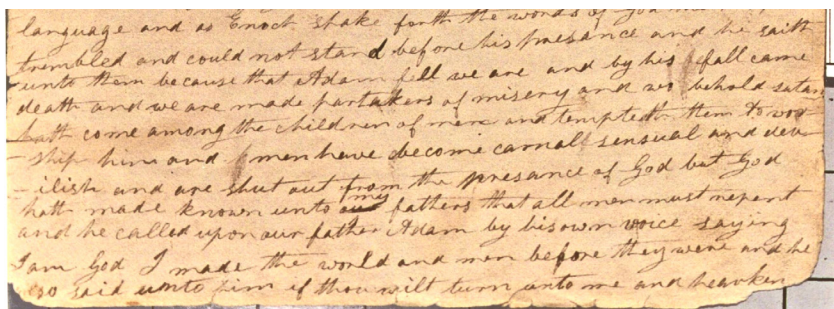 language and as Enoch spake forth the words of God
trembled and could not stand before his presance and he saith
unto them because that Adam fell we are and by his fall came
death and we are made partakers of misery and wo behold satan
hath come among the children of men and tempteth them to wor
- ship him and men have become carnal sensual and dev
- ilish and are shut out from the presance of God but God
hath made known unto my fathers that all men must repent
and he called upon our father Adam by his own voice saying
I am God I made the world and men before they were and he
also said unto him if thou wilt turn unto me and hearken